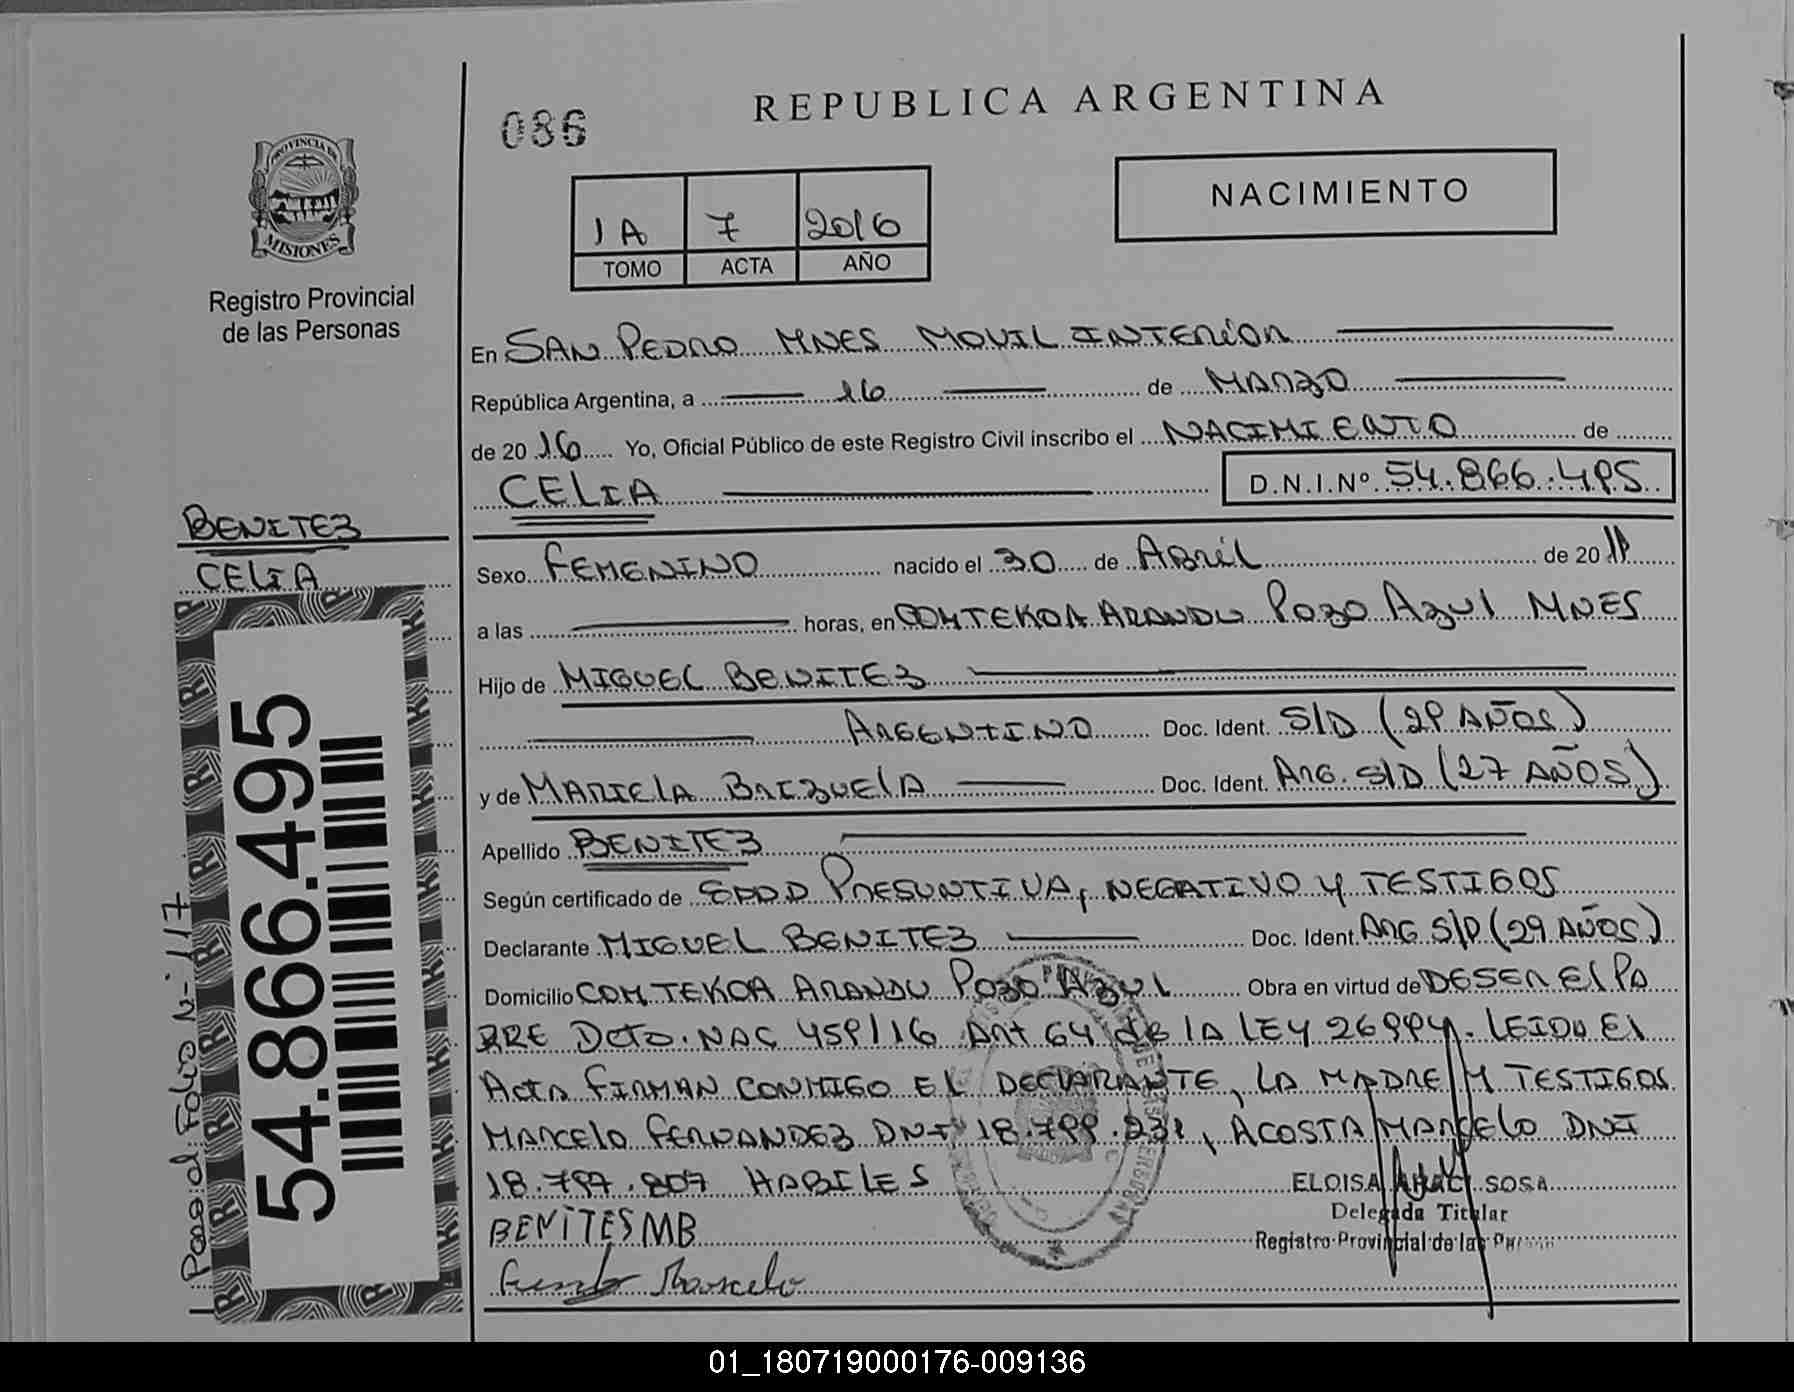 086
REPUBLICA ARGENTINA
PROVINCIA DE
MISIONES
Registro Provincial
de las Personas
1A 7 2016
TOMO ACTA AÑO
NACIMIENTO
En SAN PEDRO MNES MOVIL INTERIOR
República Argentina, a 16 de MARZO
de 20 16 Yo, Oficial Público de este Registro Civil inscribo el NACIMIENTO de
CELIA D.N.I.Nº 54.866.495
BENITEZ
CELIA
Sexo FEMENINO nacido el 30 de ABRIL de 20
a las horas, en COM TEKOA ARANDU POZO AZUL MNES
Hijo de MIGUEL BENITEZ
ARGENTINO Doc. Ident. S/D (29 AÑOS)
y de MARIELA BRIZUELA Doc. Ident. ARG. S/D (27 AÑOS)
Apellido BENITEZ
Según certificado de PRESUNTIVA, NEGATIVO Y TESTIGOS
Declarante MIGUEL BENITEZ Doc. Ident. ARG S/D (29 AÑOS)
Domicilio COM TEKOA ARANDU POZO AZUL Obra en virtud de DE SER EL PA
DRE DCTO. NAC 459/16 ART 64 DE LA LEY 26994. LEIDA EL
ACTA FIRMAN CONMIGO EL DECLARANTE, LA MADRE Y TESTIGOS
MARCELO FERNANDEZ DNI 18.799.231, ACOSTA MARCELO DNI
18.797.807 HABILES
ELOISA SOSA
Delegada Titular
Registro Provincial de las
BENITES MB
Marcelo
54.866.495
Pasa al Folio N- 117
01_180719000176-009136